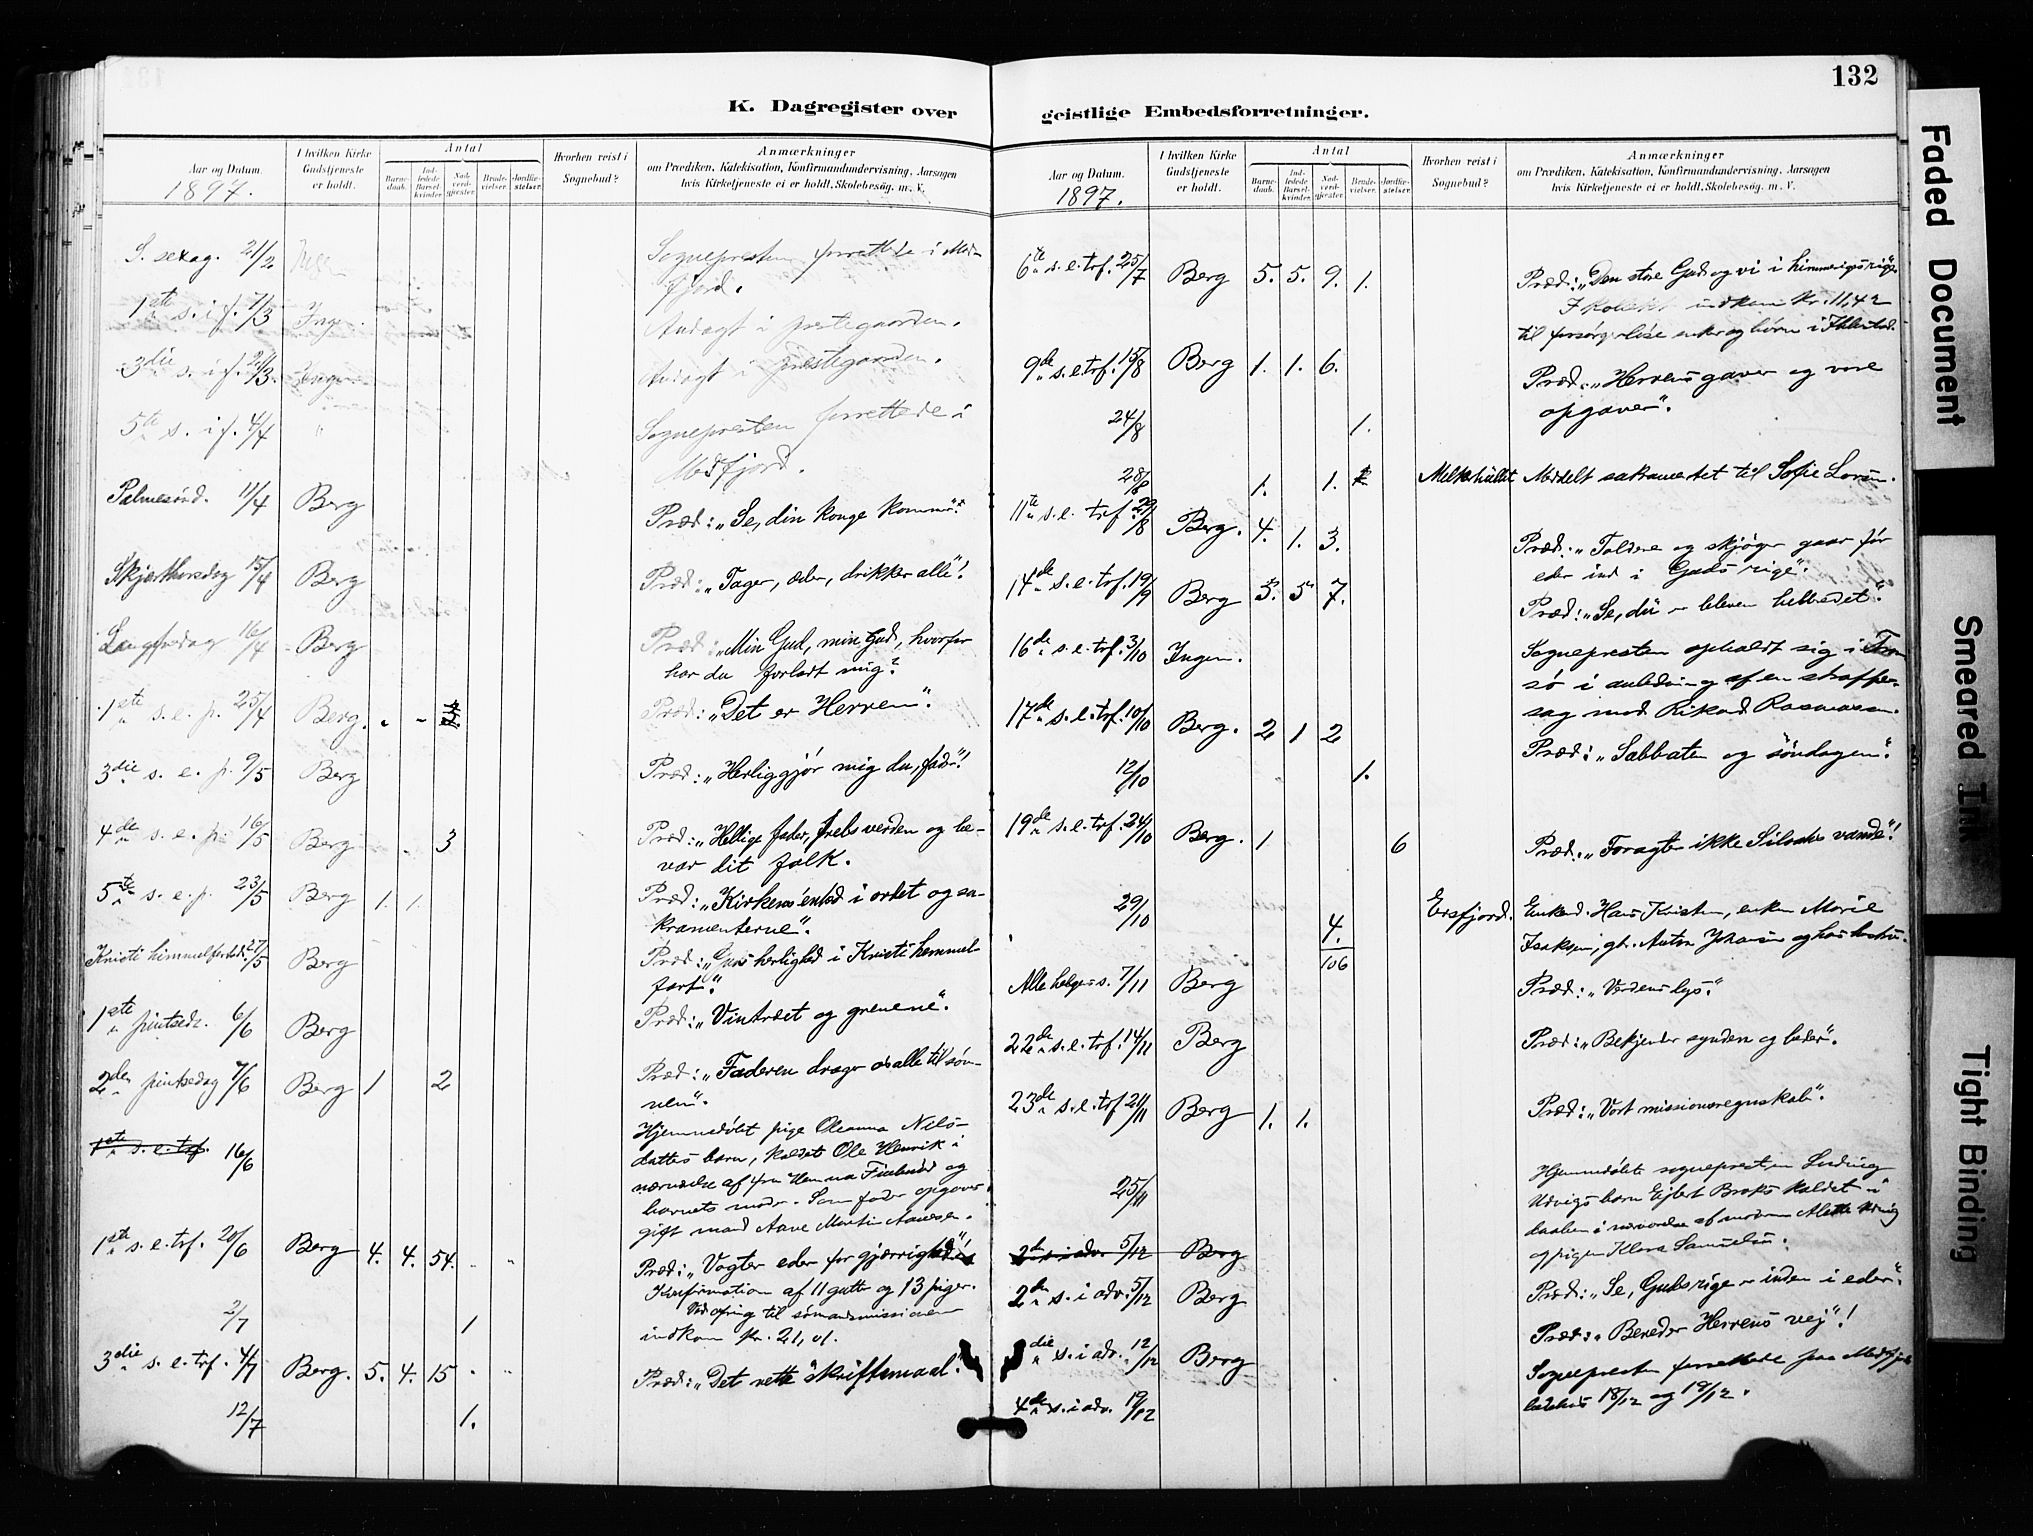 132
K. Dagregister over
geistlige Embedsforretninger.
Aar og Datum.
1897.
I hvilken Kirke
Gudstjeneste
er holdt.
Antal
Barne-
daab.
Ind-
ledede
Barsel-
kvinder.
Nad-
verd-
gjester.
Brude-
vielser.
Jordfæ-
stelser.
Hvorhen reist i
Sognebud?
Anmærkninger
om Prædiken, Katekisation, Konfirmandundervisning, Aarsagen
hvis Kirketjeneste ei er holdt, Skolebesøg. m. V.
S. sexag. 21/2 Ingen Sognepresten forrettede i Med-
fjord.
1ste s. i f. 7/3 Ingen Andagt i prestegaarden.
3die s. i f. 21/3. Ingen Andagt i prestegaarden.
5te s. i f. 4/4 " Sognepresten forrettede i
Medfjord.
Palmesønd. 11/4 Berg Præd: "Se, din konge kommer".
Skjærthorsdag 15/4 Berg Præd: "Tager, æder, drikker alle"!
Langfredag 16/4 Berg Præd: "Min Gud, min Gud, hvorfor
har du forladt mig?
1ste s. e. p. 25/4 Berg. Præd: "Det er Herren".
3die s. e. p. 9/5 Berg Præd: "Herliggjør mig du, fader"!
4de s. e. p. 16/5 Berg 3 Præd: "Hellige fader, frels verden og be-
var dit folk.
5te s. e. p. 23/5 Berg 1. 1. Præd: "Kirkens enhed i ordet og sa-
kramenterne".
Kristi himmelfartsd. 27/5 Berg Præd: "Guds herlighed i Kristi himmel-
fart".
1ste pintsed. 6/6 Berg Præd: "Vintræet og grenene".
2den pintsedag 7/6 Berg 1 2 Præd: "Faderen drager os alle til søn-
nen".
1ste s. e. trf. 16/6 Hjemmedøbt pige Oleanna Nils-
datters barn, kaldet Ole Henrik i
nærværelse af fru Hanna og
barnets moder. Som fader opgaves
gift mand Aane Martin Aanesen.
1ste s. e. trf. 20/6 Berg 4. 4. 54. Præd: "Vogter eder for gjærrighed"!
Konfirmation af 11 gutter og 13 piger.
Ved ofring til sømandsmissionen
indkom kr. 21,01.
2/7 1
3die s. e. trf. 4/7 Berg. 5. 4. 15 Præd: "Det rette skriftemaal".
12/7 1.
Aar og Datum.
1897.
I hvilken Kirke
Gudstjeneste
er holdt.
Antal
Barne-
daab.
Ind-
ledede
Barsel-
kvinder.
Nad-
verd-
gjester.
Brude-
vielser.
Jordfæ-
stelser.
Hvorhen reist i
Sognebud?
Anmærkninger
om Prædiken, Katekisation, Konfirmandundervisning, Aarsagen
hvis Kirketjeneste ei er holdt, Skolebesøg. m. V.
6te s. e. trf. 25/7 Berg 5. 5. 9. 1. Præd: "Den store Gud og vi i himmerigs rige"
I kollekt indkom kr. 11,42
til forsørgerløse enker og børn i
9de s. e. trf. 15/8 Berg 1. 1. 6. Præd: "Herrens gaver og vore
opgaver".
24/8 1.
28/8 1. 1. Meddelt sakramentet til Sofie
11te s. e. trf. 29/8 Berg. 4. 1. 3. Præd: "Toldere og skjøger gaar før
eder ind i Guds rige".
14de s. e. trf. 19/9 Berg 3. 5 7. Præd: "Se, du er bleven helbredet".
16de s. e. trf. 3/10 Ingen. Sognepresten opholdt sig i Trom
sø i anledning af en straffe-
sag mod Rikard Rasmussen.
17de s. e. trf. 10/10 Berg. 2 1 2 Præd: "Sabbaten og søndagen".
12/10 1.
19de s. e. trf. 24/10 Berg. 1 6 Præd: "Foragter ikke Siloahs vande"!
29/10 4. Ersfjord. Enkem. Hans Kristen, enken Marie
Isaksen, gb. Anton Johansen og hans hustru.
106
Alle helgens s. 7/11 Berg Præd: "Verdens lys".
22de s. e. trf. 14/11 Berg Præd: "Bekjender synden og beder".
23de s. e. trf. 21/11 Berg 1. 1. Præd: "Vort missionsregnskab".
25/11 Hjemmedøbte sogneprest Ludvig
Udvigs barn Ejlert Broks kaldet i
daaben i nærværelse af moderen Alette Udvig
og pigen Klara Samuelsen.
2den s. i adv. 5/12 Berg
2den s. i adv. 5/12 Berg Præd: "Se, Guds rige er inden i eder".
3die s. i adv. 12/12 Berg Præd: "Bereder Herrens vej"!
4de s. i adv. 19/12 Sognepresten forrettede paa Medfjord
bedehus 18/12 og 19/12.
Faded Document
Smeared Ink
Tight Binding